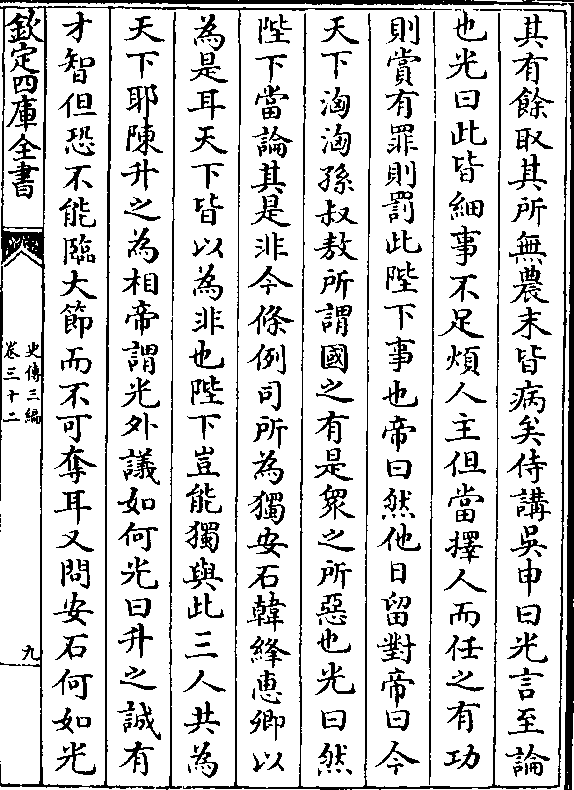 其有餘取其所無農末皆病矣侍講吳申曰光言至論
也光曰此皆細事不足煩人主但當擇人而任之有功
則賞有罪則罰此陛下事也帝曰然他日留對帝曰今
天下洶洶孫叔敖所謂國之有是衆之所惡也光曰然
陛下當論其是非今條例司所為獨安石韓絳惠卿以
為是耳天下皆以為非也陛下豈能獨與此三人共為
天下耶陳升之為相帝謂光外議如何光曰升之誠有
才智但恐不能臨大節而不可奪耳又問安石何如光
欽定四庫全書
史傳三編
卷三十二
九